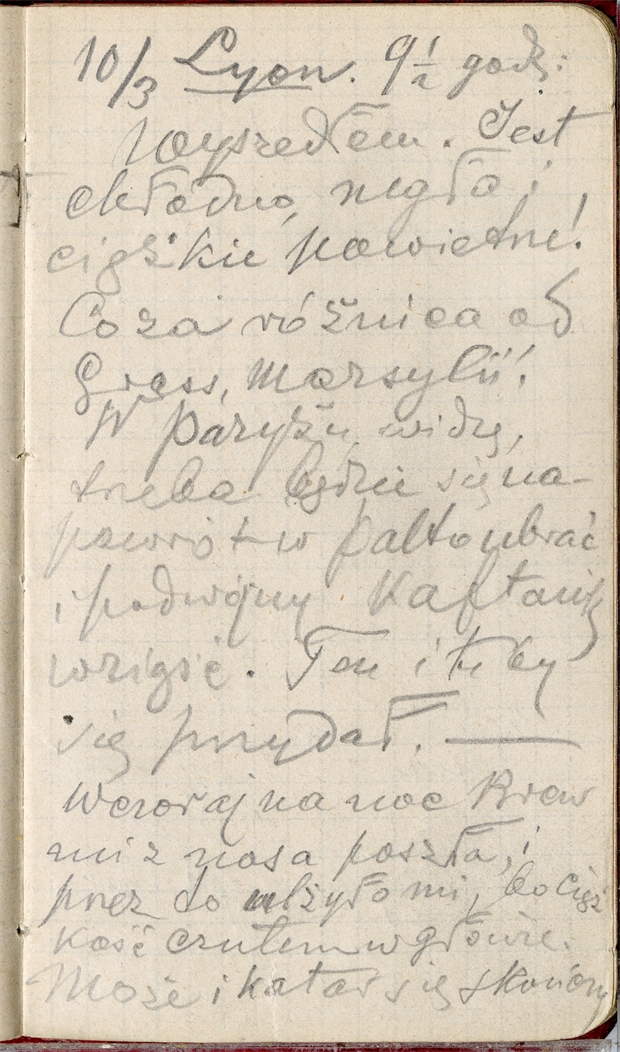 10/3 Lyon. 9 1/2 godz:
Wyszedłem. Jest
chłodno, mgła i
ciężkie powietrze!
Co za różnica od
Grass, Marsylii!
W Paryżu, widzę,
trzeba będzie się na-
powrót w palto ubrać
i podwójny Kaftanik
wziąść. Ten i tu by
się przydał. —
Wczoraj na noc Krew
mi z nosa poszła, i
przez to ulżyło mi, bo cięż
kość czułem w głowie.
Może i katar się skończy